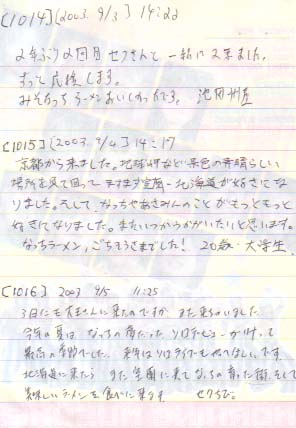 [1014] (2003. 9/3) 14:22
2年ぶり2回目 セクさんと 一緒に 又来ました。
ずっと応援します。
みそなっち ラーメンおいしかったです。
[1015] (2003. 9/4) 14:17
京都から来ました。地球岬など景色の素晴らしい
場所を見て回って ますます室蘭・北海道が好きにな
りました。そして、なっちやあさみんのことがもっともっと
好きになりました。またいつかうかがいたいと思います。
なっちラーメン、ごちそうさまでした! 20歳・大学生
[1016] 2003 9/5 11:25
3日にも 来たのですが また来ちゃいました。
今年の夏は なっちの育った ソロデビューが
最高の季節でした。 来年はソロライブもやってほしいです。
北海道に来たら また室蘭に来て なっちの育った街、そして
美味しいラーメンを食べに来ます。